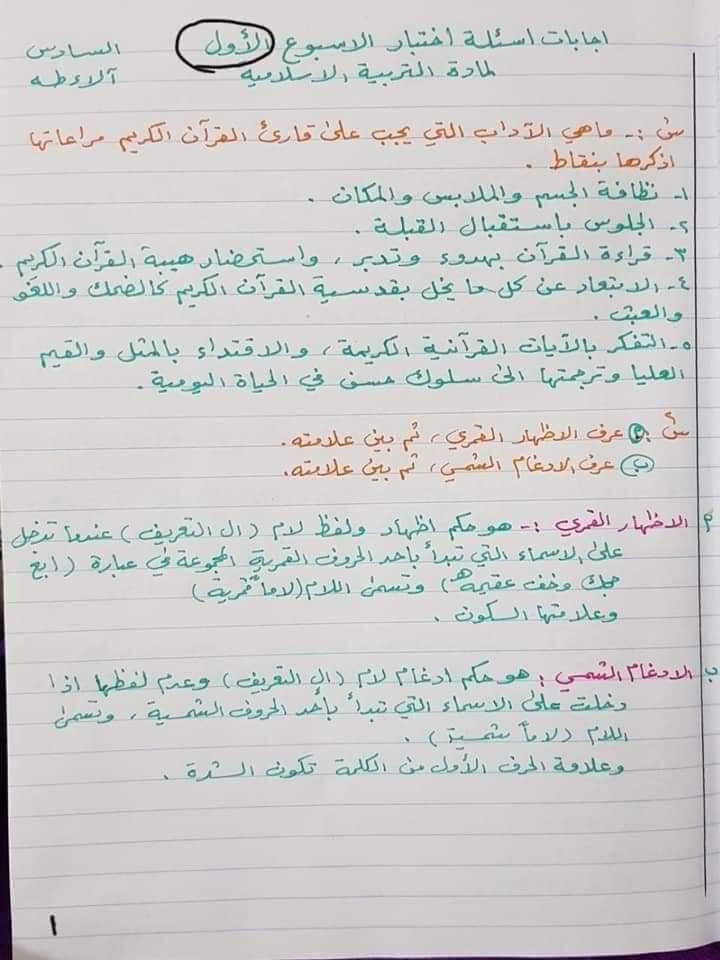 اجابات اسئلة اختبار الاسبوع الأول السادس
لمادة التربية الاسلامية آلاء طه
س١:- ماهي الآداب التي يجب على قارئ القرآن الكريم مراعاتها
اذكرها بنقاط .
١- نظافة الجسم والملابس والمكان .
٢- الجلوس باستقبال القبلة .
٣- قراءة القرآن بهدوء وتدبر ، واستحضار هيبة القرآن الكريم .
٤- الابتعاد عن كل ما يخل بقدسية القرآن الكريم كالضحك واللغو
والعبث .
٥- التفكر بالآيات القرآنية الكريمة ، والاقتداء بالمثل والقيم
العليا وترجمتها الى سلوك حسن في الحياة اليومية .
س٢: أ عرف الاظهار القمري ، ثم بين علامته .
ب عرف الادغام الشمسي ، ثم بين علامته .
أ. الاظهار القمري :- هو حكم اظهار ولفظ لام ( ال التعريف ) عندما تدخل
على الاسماء التي تبدأ بأحد الحروف القمرية المجموعة في عبارة ( ابغ
حجك وخف عقيمه ) وتسمى اللام ( لاماً قمرية )
وعلامتها السكون .
ب. الادغام الشمسي : هو حكم ادغام لام ( ال التعريف ) وعدم لفظها اذا
دخلت على الاسماء التي تبدأ بأحد الحروف الشمسية ، وتسمى
اللام ( لاماً شمسية ) .
وعلامة الحرف الأول من الكلمة تكون الشدة .
١